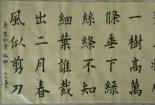 一樹高萬
條垂下綠
絲絛不知
細葉誰裁
出二月春
風似剪刀